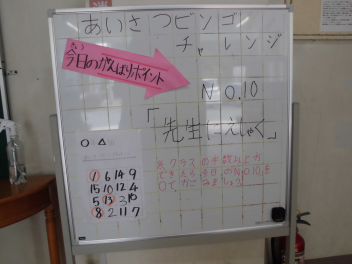 あいさつビンゴ
チャレンジ
きょう
今日のがんばりポイント
NO.10
「先生にえしゃく」
※クラスの半数以上が
できたら今日のNO.10を
○でかこみましょう
○ △
1 6 14 9
15 10 12 4
5 13 3 16
8 2 11 7